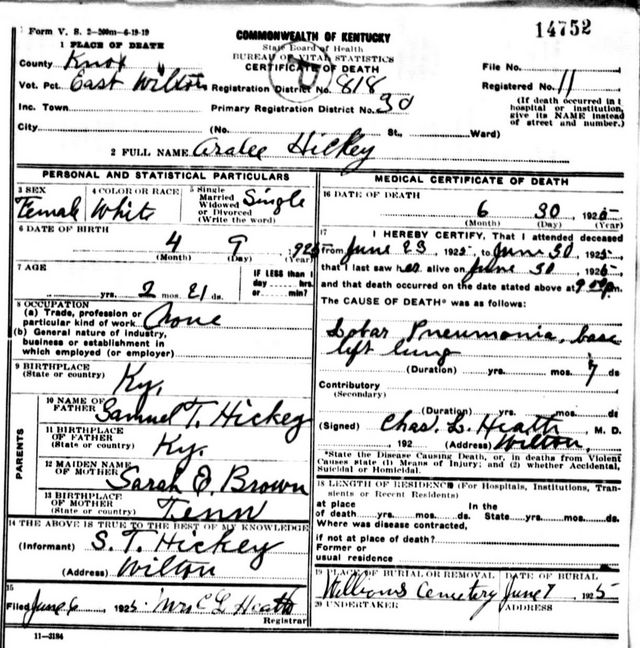 Form V. S. 2-200m-6-19-19
14752
COMMONWEALTH OF KENTUCKY
State Board of Health
BUREAU OF VITAL STATISTICS
CERTIFICATE OF DEATH
1 PLACE OF DEATH
County Knox
File No.
Vot. Pct. East Wilton
Registration District No. 818
Registered No. 11
Inc. Town
Primary Registration District No. 30
(If death occurred in a hospital or institution, give its NAME instead of street and number.)
City (No. St., Ward)
2 FULL NAME Aralee Hickey
PERSONAL AND STATISTICAL PARTICULARS
3 SEX
Female
4 COLOR OR RACE
White
5 Single
Married
Widowed
or Divorced
(Write the word)
Single
6 DATE OF BIRTH
4 9 1925
(Month) (Day) (Year)
7 AGE
yrs. 2 mos. 21 ds.
IF LESS than 1
day hrs.
or min?
8 OCCUPATION
(a) Trade, profession or
particular kind of work None
(b) General nature of industry,
business or establishment in
which employed (or employer)
9 BIRTHPLACE
(State or country)
Ky.
PARENTS
10 NAME OF
FATHER
Samuel T. Hickey
11 BIRTHPLACE
OF FATHER
(State or country)
Ky.
12 MAIDEN NAME
OF MOTHER
Sarah E. Brown
13 BIRTHPLACE
OF MOTHER
(State or country)
Tenn
14 THE ABOVE IS TRUE TO THE BEST OF MY KNOWLEDGE
(Informant) S. T. Hickey
(Address) Wilton
15
Filed June 6 1925 Mrs C L Heath
Registrar
11-3184
MEDICAL CERTIFICATE OF DEATH
16 DATE OF DEATH
6 30, 1925
(Month) (Day) (Year)
17
I HEREBY CERTIFY, That I attended deceased
from June 23 1925, to June 30 1925,
that I last saw her alive on June 30 1925
and that death occurred on the date stated above at m.
The CAUSE OF DEATH* was as follows:
Lobar Pneumonia, base
left lung
(Duration) yrs. mos. 7 ds
Contributory
(Secondary)
(Duration) yrs. mos. ds
(Signed) Chas. L. Heath, M. D.
, 192 (Address) Wilton,
*State the Disease Causing Death, or, in deaths from Violent
Causes state (1) Means of Injury; and (2) whether Accidental,
Suicidal or Homicidal.
18 LENGTH OF RESIDENCE (For Hospitals, Institutions, Transients or Recent Residents)
at place In the
of death yrs. mos. ds. State yrs. mos. ds.
Where was disease contracted,
if not at place of death?
Former or
usual residence
19 PLACE OF BURIAL OR REMOVAL
Williams Cemetery
DATE OF BURIAL
June 7 1925
20 UNDERTAKER
ADDRESS